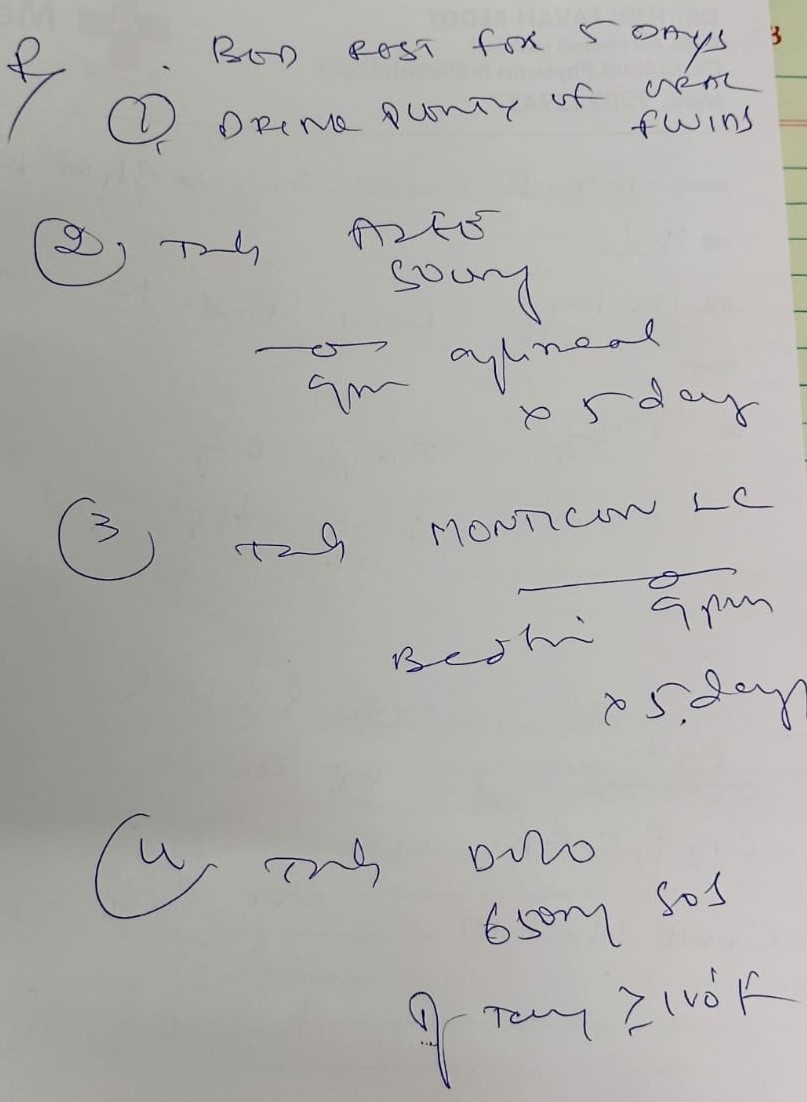 Rx . BED REST FOR 5 DAYS
① DRINK PLENTY OF ORAL
FLUIDS
② Tab AZEE
500mg
—o— after meal
9pm
x 5 day
③ Tab MONTICON LC
—o—
9pm
Bedtime
x 5 day
4. Tab DOLO
650mg SOS
If Temp ≥ 100°F